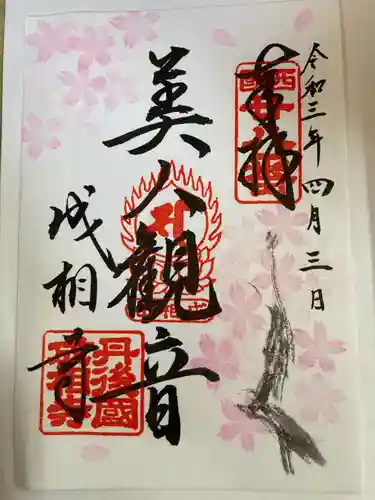 令和三年四月三日
奉拝
美人観音
成相寺
丹後國
成相寺